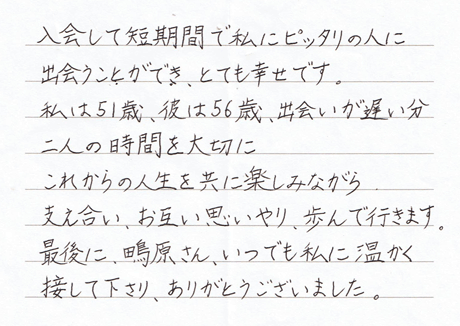 入会して短期間で私にピッタリの人に
出会うことができ、とても幸せです。
私は51歳、彼は56歳、出会いが遅い分
二人の時間を大切に
これからの人生を共に楽しみながら
支え合い、お互い思いやり、歩んで行きます。
最後に、鴫原さん、いつでも私に温かく
接して下さり、ありがとうございました。